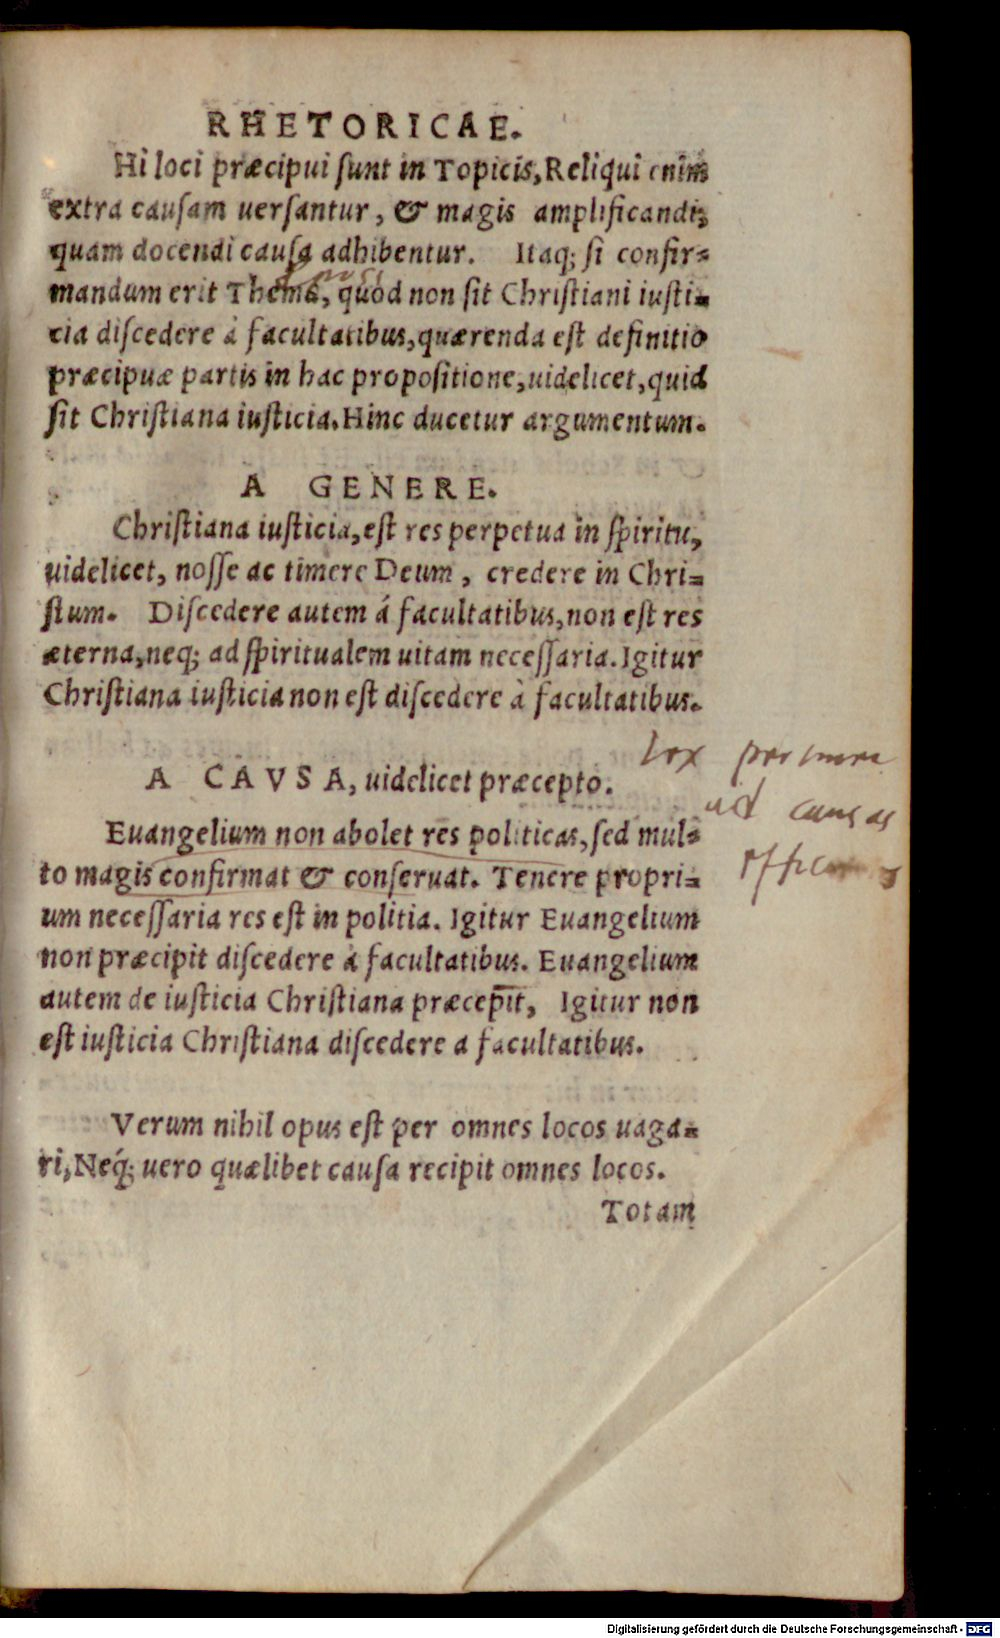 RHETORICAE.
Hi loci præcipui ſunt in Topicis, Reliqui enim
extra cauſam uerſantur, & magis amplificandi,
quàm docendi cauſa adhibentur. Itaq; ſi confir⸗
mandum erit Thema, quòd non ſit Chriſtiani iuſti⸗
cia diſcedere à facultatibus, quærenda eſt definitio
præcipuæ partis in hac propoſitione, uidelicet, quid
ſit Chriſtiana iuſticia. Hinc ducetur argumentum.
A GENERE.
Chriſtiana iuſticia, eſt res perpetua in ſpiritu,
uidelicet, noſſe ac timere Deum, credere in Chri⸗
ſtum. Diſcedere autem á facultatibus, non eſt res
æterna, neq; ad ſpiritualem uitam neceſſaria. Igitur
Chriſtiana iuſticia non eſt diſcedere à facultatibus.
lex
A CAVSA, uidelicet præcepto.
ad causas
Euangelium non abolet res politicas, ſed mul⸗
to magis confirmat & conſeruat. Tenere propri⸗
um neceſſaria res eſt in politia. Igitur Euangelium
non præcipit diſcedere à facultatibus. Euangelium
autem de iuſticia Chriſtiana præcepit, Igitur non
eſt iuſticia Chriſtiana diſcedere a facultatibus.
Verum nihil opus eſt per omnes locos uaga⸗
ri, Neq́; uero quælibet cauſa recipit omnes locos.
Totam
Digitalisierung gefördert durch die Deutsche Forschungsgemeinschaft - DFG